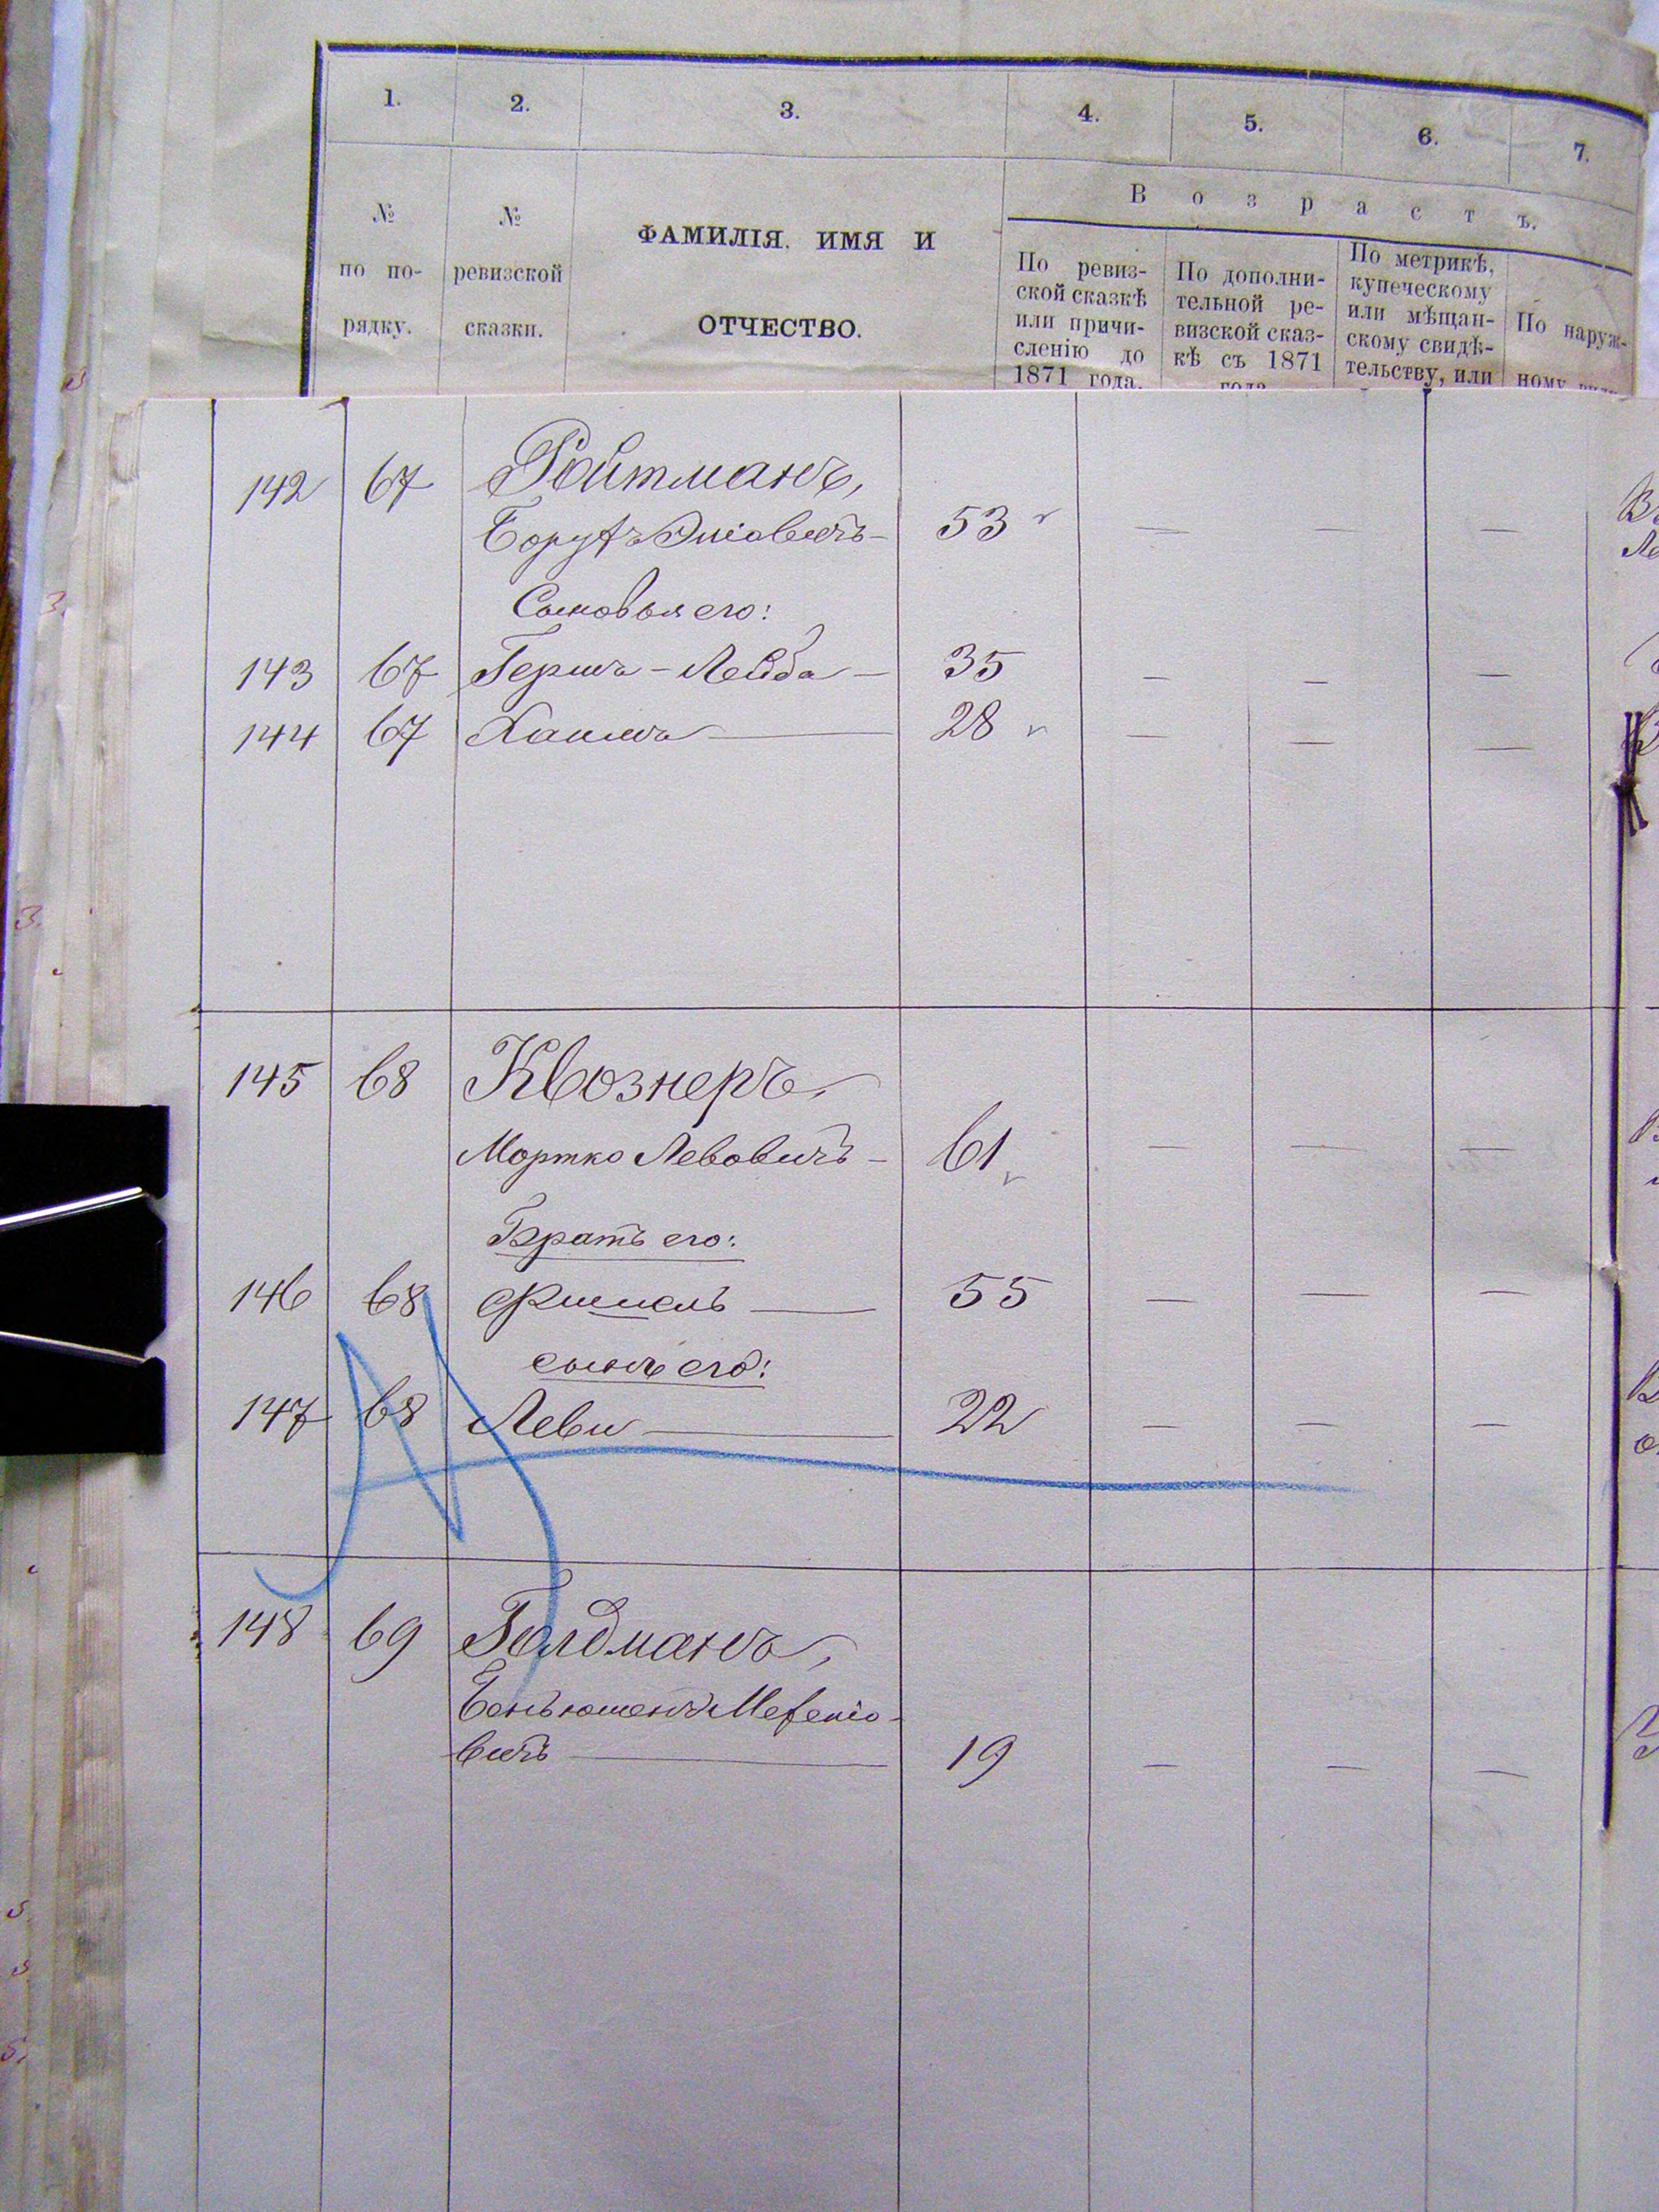 1. 2. 3. 4. 5. 6. 7.
№ по по-рядку.
№ ревизской сказки.
ФАМИЛІЯ. ИМЯ И
ОТЧЕСТВО.
Возрастъ.
По ревиз-
ской сказкѣ
или причи-
сленію до
1871 года.
По дополни-
тельной ре-
визской сказ-
кѣ съ 1871
года
По метрикѣ,
купеческому
или мѣщан-
скому свидѣ-
тельству, или
По наруж-
ному
142 67 Ройтманъ,
Борухъ Эліовичъ — 53 — — —
Сыновья его:
143 67 Гершъ-Лейба — 35 — — —
144 67 Хаимъ — 28 — — —
145 68 Квознеръ,
Мортко Левовичъ — 61 — — —
Братъ его:
146 68 Фишель — 55 — — —
сынъ его:
147 68 Леви — 22 — — —
148 69 Голдманъ,
вичъ — 19 — — —